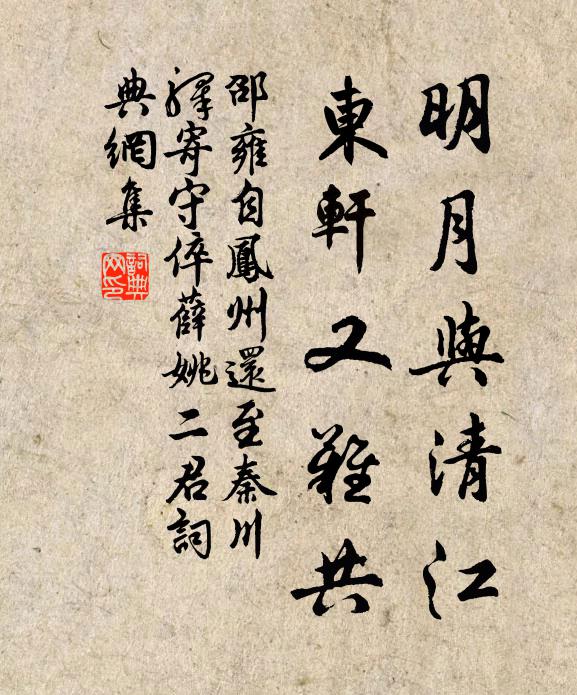 明月與清江
東軒又難共
邵雍自鳳州還至秦川
驛寄守倅薛姚二君詞
典網集
詞典網印